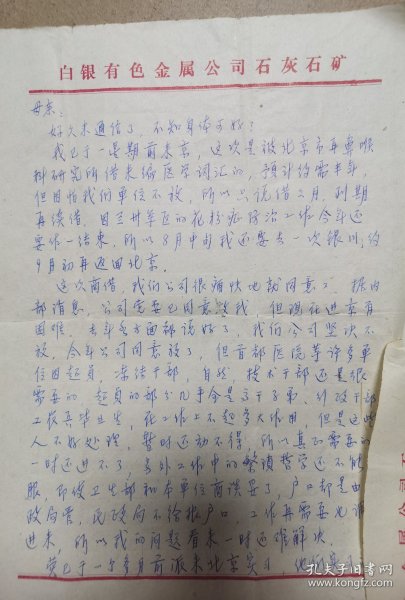 白银有色金属公司石灰石矿
母亲:
好久未通信了,不知身体可好?
我已于一星期前来京,这次是被北京市耳鼻喉
科研究所借来编医学词汇的,预计约需半年,
但因怕我们单位不放,所以只说借2月,到期
再续借。因兰州军区的花粉症防治工作今年还
要作一结束,所以8月中旬我还要去一次银川,约
9月初再返回北京。
这次商借,我们公司很痛快地就同意了。据内
部消息,公司党委已同意放我,但现在进京有
困难。去年各方面都说好了,我们公司坚决不
放,今年公司同意放了,但首都医院等许多单
位因超员,冻结干部,自然,技术干部还是很
需要的,超员的部分几乎全是高干子弟、外政干部
工农兵毕业生,在工作上不起多大作用,但是这些
人不好处理,暂时还动不得,所以真正需要的
一时还进不了,另外工作中的繁琐哲学还不能
服,即使卫生部和本单位商谈妥了,户口却是由
政局管,民政局不给报户口,工作再需要也调
进来,所以我的问题看来一时还难解决。
已于一个多月前派来北京吴
孔夫子旧书网
kongfz.com